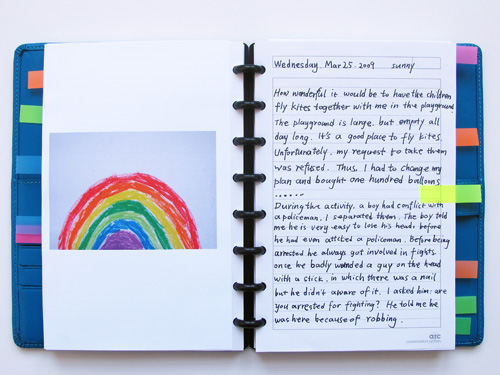 Wednesday. Mar 25. 2009 sunny
How wonderful it would be to have the children
fly kites together with me in the playground.
The playground is large, but empty all
day long. It's a good place to fly kites.
Unfortunately, my request to take them
was refused. Thus, I had to change my
plan and bought one hundred balloons.
......
During the activity, a boy had conflict with
a policeman. I separated them. The boy told
me he is very easy to lose his head; before
he had even attcked a policeman. Before being
arrested he always got involved in fights.
once he badly wounded a guy on the head
with a stick, in which there was a nail
but he didn't aware of it. I asked him: are
you arrested for fighting? He told me he
was here because of robbing.
arc